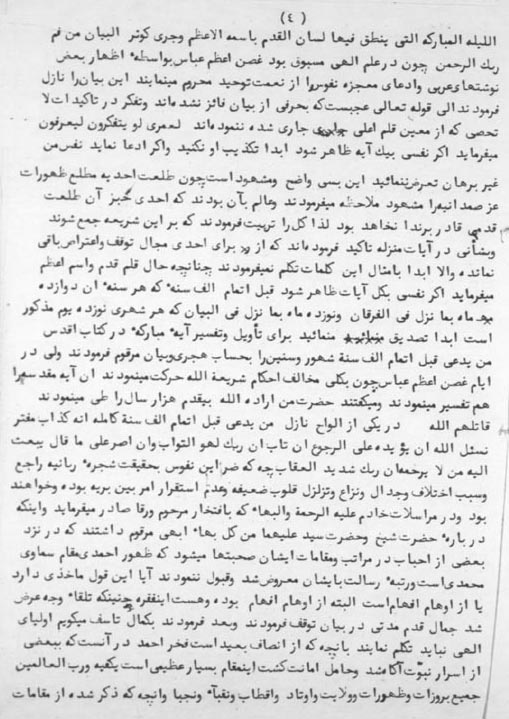 ( ٤ )
الليله المباركه التى ينطق فيها لسان القدم باسمه الاعظم وجرى كوثر البيان من فم
ربك الرحمن چون در علم الهى مسبوق بود غصن اعظم عباس بواسطهٔ اظهار بعض
نوشتهاى عربى وادعاى معجزه نفوس را از نعمت توحيد محروم مينمايند اين بيان را نازل
فرمودند الى قوله تعالى عجبست كه بحرفى از بيان فائز نشده اند وتفكر در تاكيدات لا
تحصى كه از معين قلم اعلى جارى شده ننموده اند لعمرى لو يتفكرون ليعرفون
ميفرمايد اكر نفسى بيك آيه ظاهر شود ابدا تكذيب او نكنيد واكر ادعا نمايد نفس من
غير برهان تعرض ننمائيد اين بسى واضح ومشهود است چون طلعت احديه مطلع ظهورات
عز صمدانيه را مشهود ملاحظه ميفرمودند وعالم بآن بودند كه احدى بجز آن طلعت
قدمى قادر برندا نخواهد بود لذا كل را تربيت فرمودند كه بر اين شريعه جمع شوند
وبشأنى در آيات منزله تاكيد فرموده اند كه از براى احدى مجال توقف واعتراض باقى
نمانده والا ابدا بامثال اين كلمات تكلم نميفرمودند چنانچه حال قلم قدم واسم اعظم
ميفرمايد اكر نفسى بكل آيات ظاهر شود قبل اتمام الف سنه كه هر سنهٔ ان دوازده
ماه بما نزل فى الفرقان ونوزده ماه بما نزل فى البيان كه هر شهرى نوزده يوم مذكور
است ابدا تصديق منمائيد براى تأويل وتفسير آيهٔ مباركهٔ در كتاب اقدس
من يدعى قبل اتمام الف سنة شهور وسنين را بحساب هجرى وبيان مرقوم فرمودند ولى در
ايام غصن اعظم عباس چون بكلى مخالف احكام شريعة الله حركت مينمودند ان آيه مقدسه را
هم تفسير مينمودند وميكفتند حضرت من اراده الله بيقدم هزار سال را طى مينمودند
قاتلهم الله در يكى از الواح نازل من يدعى قبل اتمام الف سنة كامله انه كذاب مفتر
نسئل الله ان يؤيده على الرجوع ان تاب ان ربك لهو التواب وان اصر على ما قال يبعث
اليه من لا يرحمه ان ربك شديد العقاب چه كه ضر اين نفوس بحقيقت شجرهٔ ربانيه راجع
وسبب اختلاف وجدال ونزاع وتزلزل قلوب ضعيفه وعدم استقرار امر بين بريه بوده وخواهند
بود ودر مراسلات خادم عليه الرحمة والبهاء كه بافتخار مرحوم ورقا صادر ميفرمايد واينكه
در بارهٔ حضرت شيخ وحضرت سيد عليهما من كل بهاء ابهى مرقوم داشتند كه در نزد
بعضى از احباب در مراتب ومقامات ايشان صحبتها ميشود كه ظهور احمدى مقام سماوى
محمدى است ورتبهٔ رسالت بايشان معروض شد وقبول ننمودند آيا اين قول ماخذى دارد
يا از اوهام افهام است البته از اوهام افهام بوده وهست اينفقره چنينكه تلقاء وجه عرض
شد جمال قدم مدتى در بيان توقف فرمودند وبعد فرمودند بكمال تاسف ميكويم اولياى
الهى نبايد تكلم نمايند بانچه كه از انصاف بعيد است فخر احمد در آنست كه ببعضى
از اسرار نبوّت آكاه شد وحامل امانت كشت اينمقام بسيار عظيمى است يكفيه ورب العالمين
جميع بروزات وظهورات وولايت واوتاد واقطاب ونقبآء ونجبا وانچه كه ذكر شده از مقامات